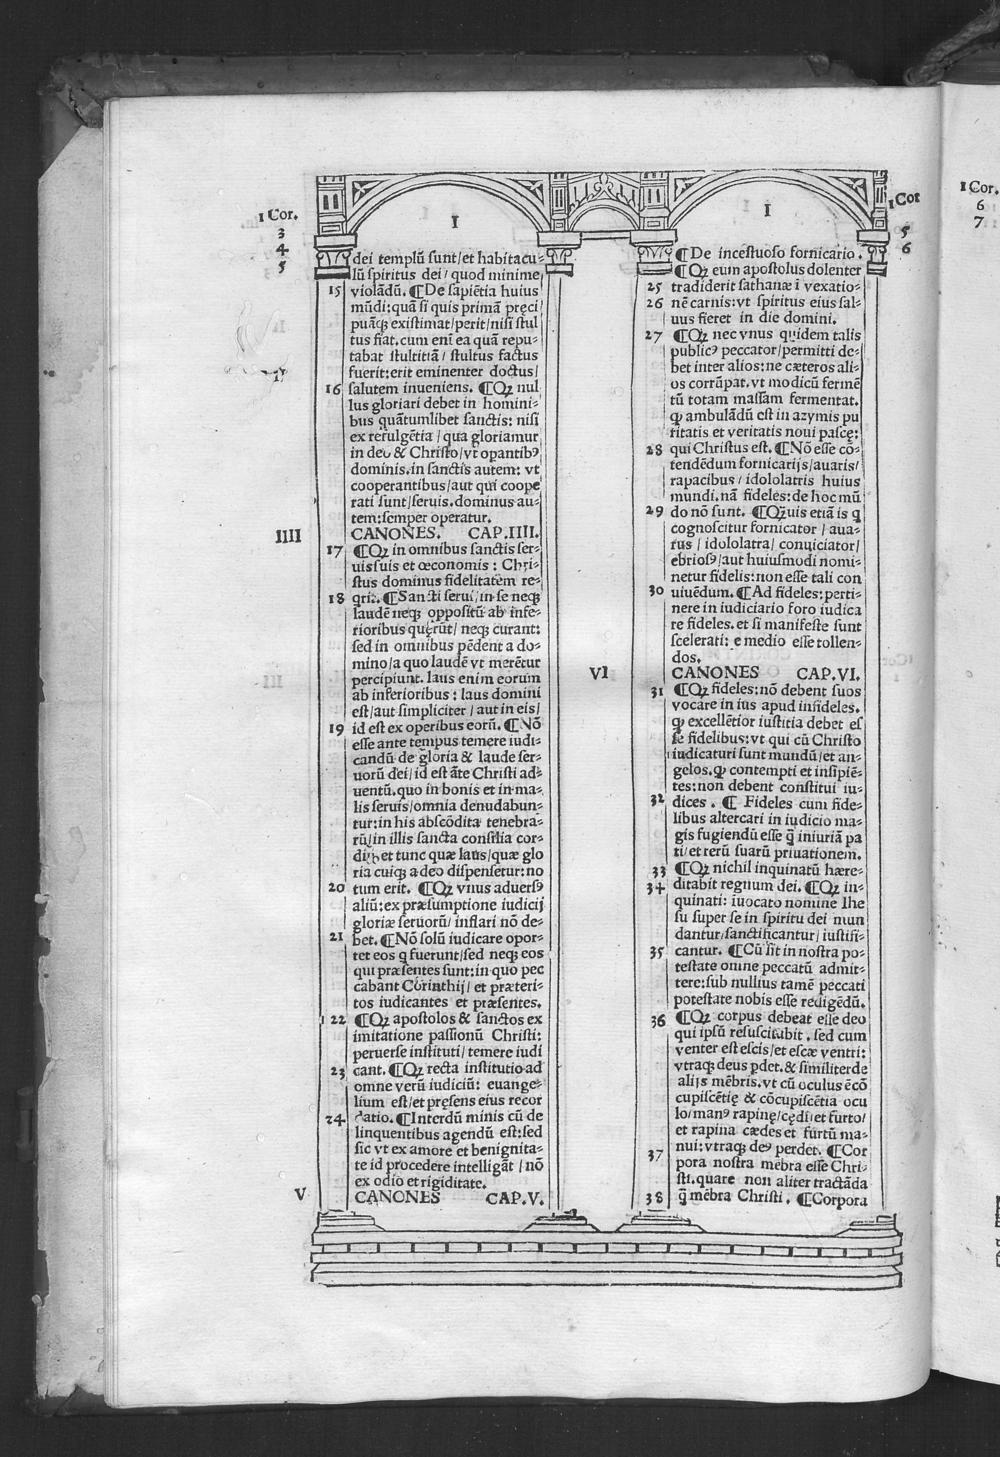 1 Cor.
3
4
5
I
dei templū sunt/et habitacu-
lū spiritus dei/ quod minime
15 violādū. ¶De sapiētia huius
mūdi: quā si quis primā pręci
puāqȝ existimat/perit/nisi stul
tus fiat. cum enī ea quā repu-
tabat stultitiā/ stultus factus
fuerit: erit eminenter doctus/
16 salutem inueniens. ¶Qȝ nul
lus gloriari debet in homini-
bus quātumlibet sanctis: nisi
ex refulgētia/ qua gloriamur
in deo & Christo/vt operantibꝰ
dominis. in sanctis autem: vt
cooperantibus/aut qui coope
rati sunt/seruis. dominus au-
tem: semper operatur.
IIII CANONES. CAP.IIII.
17 ¶Qȝ in omnibus sanctis ser-
uis suis et œconomis: Chri-
stus dominus fidelitatem re-
18 qrit. ¶Sancti serui/in se neqȝ
laudē neqȝ oppositū ab infe-
rioribus quęrūt/ neqȝ curant:
sed in omnibus pēdent a do-
mino/a quo laudē vt merētur
percipiunt. laus enim eorum
ab inferioribus: laus domini
est/aut simpliciter/ aut in eis/
19 id est ex operibus eorū. ¶Nō
esse ante tempus temere iudi-
candū de gloria & laude ser-
uorū dei/ id est āte Christi ad-
uentū. quo in bonis et in ma-
lis seruis/omnia denudabun-
tur: in his abscōdita tenebra-
rū/in illis sancta consilia cor-
diū. et tunc quæ laus/quæ glo
ria cuiqȝ a deo dispensetur: no
20 tum erit. ¶Qȝ vnus aduersꝰ
aliū: ex præsumptione iudicij
gloriæ seruorū/ inflari nō de-
21 bet. ¶Nō solū iudicare opor-
tet eos q̄ fuerunt/sed neqȝ eos
qui præsentes sunt: in quo pec
cabant Corinthij/ et præteri-
tos iudicantes et præsentes.
22 ¶Qȝ apostolos & sanctos ex
imitatione passionū Christi:
peruerse instituti/ temere iudi
23 cant. ¶Qȝ recta institutio ad
omne verū iudiciū: euange-
lium est/et pręsens eius recor
24 datio. ¶Interdū minis cū de
linquentibus agendū est: sed
sic vt ex amore et benignita-
te id procedere intelligāt/ nō
ex odio et rigiditate.
V CANONES CAP.V.
1 Cor
5
6
I
¶De incestuoso fornicario.
¶Qȝ eum apostolus dolenter
25 tradiderit sathanæ ī vexatio-
26 nē carnis: vt spiritus eius sal-
uus fieret in die domini.
27 ¶Qȝ nec vnus quidem talis
publicꝰ peccator/permitti de-
bet inter alios: ne cæteros ali-
os corrūpat. vt modicū fermē
tū totam massam fermentat.
qꝫ ambulādū est in azymis pu
ritatis et veritatis noui pascę:
28 qui Christus est. ¶Nō esse cō-
tendēdum fornicarijs/auaris/
rapacibus/ idololatris huius
mundi. nā fideles: de hoc mū
29 do nō sunt. ¶Qȝuis etiā is q̄
cognoscitur fornicator/ aua-
rus/ idololatra/ conuiciator/
ebriosꝰ/aut huiusmodi nomi-
netur fidelis: non esse tali con
30 uiuēdum. ¶Ad fideles: perti-
nere in iudiciario foro iudica
re fideles. et si manifeste sunt
scelerati: e medio esse tollen-
dos.
VI CANONES CAP.VI.
31 ¶Qȝ fideles: nō debent suos
vocare in ius apud infideles.
qꝫ excellētior iustitia debet es
se fidelibus: vt qui cū Christo
iudicaturi sunt mundū/et an-
gelos. qꝫ contempti et insipiē-
tes: non debent constitui iu-
32 dices. ¶ Fideles cum fide-
libus altercari in iudicio ma-
gis fugiendū esse q̄ iniuriā pa
ti/et rerū suarū priuationem.
33 ¶Qȝ nichil inquinatū hære-
34 ditabit regnum dei. ¶Qȝ in-
quinati: iuocato nomine Ihe
su super se in spiritu dei mun
dantur/sanctificantur/iustifi-
35 cantur. ¶Cū sit in nostra po-
testate omne peccatū admit-
tere: sub nullius tamē peccati
potestate nobis esse redigēdū.
36 ¶Qȝ corpus debeat esse deo
qui ipsū resuscitabit. sed cum
venter est escis/et escæ ventri:
vtraqȝ deus pdet. & similiter de
alijs mēbris. vt cū oculus ē cō
cupiscētię & cōcupiscētia ocu
lo/manꝰ rapinę/cędi/et furto/
et rapina cædes et furtū ma-
nui: vtraqȝ deꝰ perdet. ¶Cor
37 pora nostra mēbra esse Chri-
sti. quare non aliter tractāda
38 q̄ mēbra Christi. ¶Corpora
1 Cor.
6
7